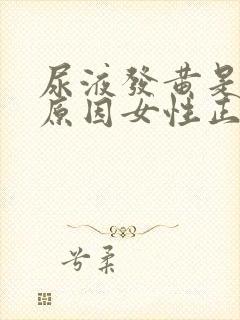 尿液發黃是
原因女性正
兮柔